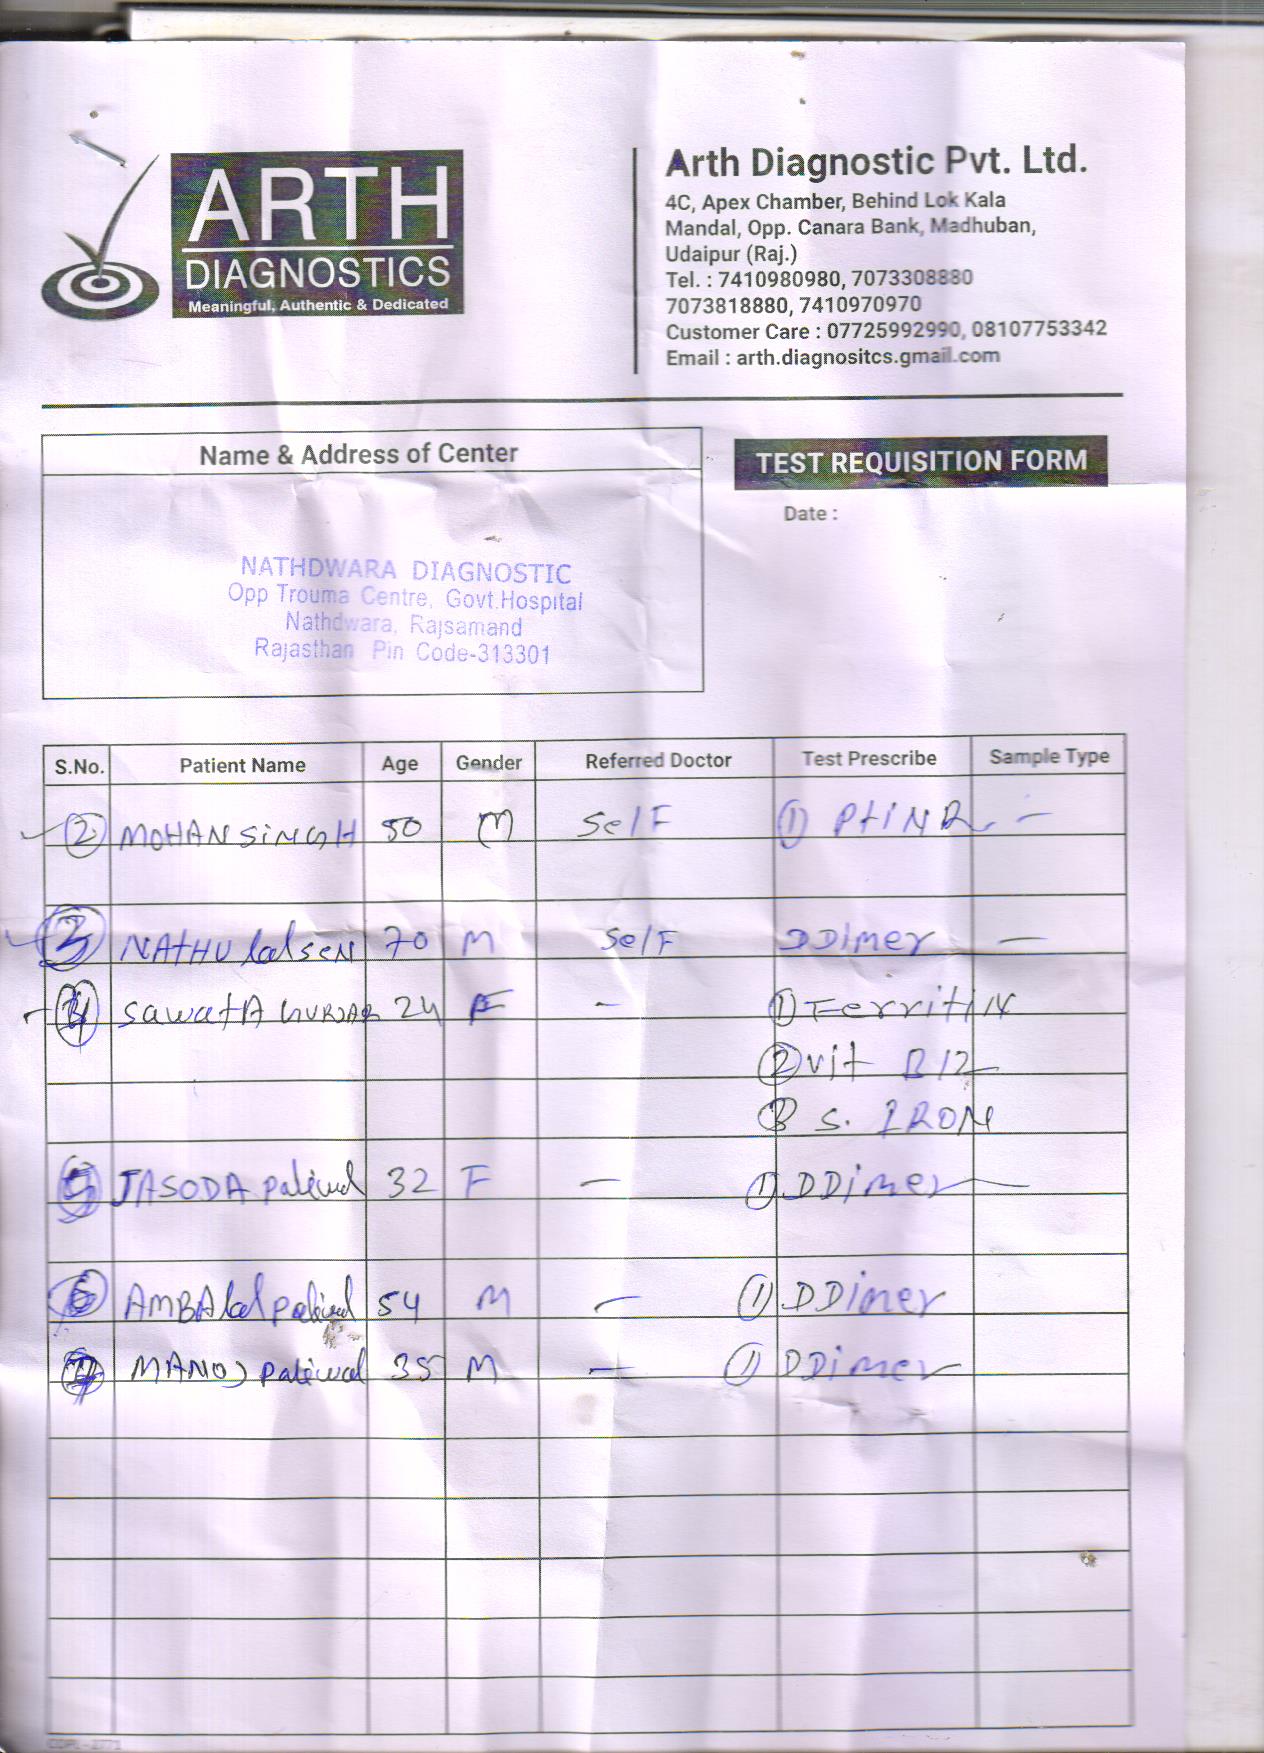 ARTH
DIAGNOSTICS
Meaningful, Authentic & Dedicated
Arth Diagnostic Pvt. Ltd.
4C, Apex Chamber, Behind Lok Kala
Mandal, Opp. Canara Bank, Madhuban,
Udaipur (Raj.)
Tel. : 7410980980, 7073308880
7073818880, 7410970970
Customer Care : 07725992990, 08107753342
Email : arth.diagnositcs.gmail.com
Name & Address of Center
TEST REQUISITION FORM
Date :
NATHDWARA DIAGNOSTIC
Opp Trouma Centre, Govt.Hospital
Nathdwara, Rajsamand
Rajasthan Pin Code-313301
S.No. Patient Name Age Gender Referred Doctor Test Prescribe Sample Type
2 MOHAN SINGH 50 M Self ① PtINR -
3 NATHU lalSEN 70 M Self DDimer -
4 SawatA GURJAR 24 F - ① Ferritin
② vit B12
3 S. IRON
5 JASODA paliwal 32 F - ① DDimer -
6 AMBAlal paliwal 54 M - ① DDimer
7 MANOJ paliwal 35 M - ① DDimer